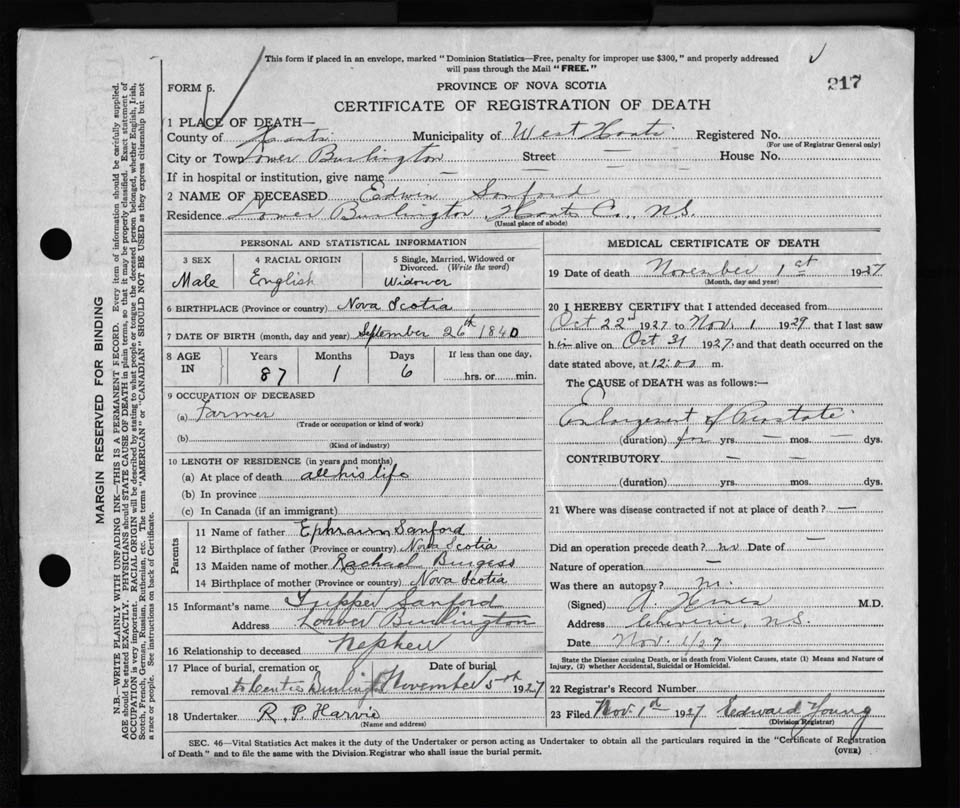 This form if placed in an envelope, marked "Dominion Statistics—Free, penalty for improper use $300," and properly addressed
will pass through the Mail "FREE."
217
FORM 6.
PROVINCE OF NOVA SCOTIA
CERTIFICATE OF REGISTRATION OF DEATH
1 PLACE OF DEATH—
County of Hants Municipality of West Hants Registered No.
(For use of Registrar General only)
City or Town Lower Burlington Street — House No.
If in hospital or institution, give name —
2 NAME OF DECEASED Edwin Sanford
Residence Lower Burlington, Hants Co., N.S.
(Usual place of abode)
PERSONAL AND STATISTICAL INFORMATION
3 SEX 4 RACIAL ORIGIN 5 Single, Married, Widowed or
Divorced. (Write the word)
Male English Widower
6 BIRTHPLACE (Province or country) Nova Scotia
7 DATE OF BIRTH (month, day and year) September 26th 1840
8 AGE IN Years Months Days If less than one day,
87 1 6 hrs. or min.
9 OCCUPATION OF DECEASED
(a) Farmer
(Trade or occupation or kind of work)
(b)
(Kind of industry)
10 LENGTH OF RESIDENCE (in years and months)
(a) At place of death all his life
(b) In province
(c) In Canada (if an immigrant)
Parents
11 Name of father Ephraim Sanford
12 Birthplace of father (Province or country) Nova Scotia
13 Maiden name of mother Rachael Burgess
14 Birthplace of mother (Province or country) Nova Scotia
15 Informant's name Tupper Sanford
Address Lower Burlington
16 Relationship to deceased Nephew
17 Place of burial, cremation or Date of burial
removal Centre Burlington November 5th 1927
18 Undertaker R. P. Harvie
(Name and address)
MEDICAL CERTIFICATE OF DEATH
19 Date of death November 1st 1927
(Month, day and year)
20 I HEREBY CERTIFY that I attended deceased from
Oct 22nd 1927 to Nov. 1 1927 that I last saw
him alive on Oct 31 1927, and that death occurred on the
date stated above, at 12:00 m.
The CAUSE of DEATH was as follows:—
Enlargement of Prostate
(duration) for yrs. — mos. — dys.
CONTRIBUTORY — —
(duration) yrs. — mos. dys.
21 Where was disease contracted if not at place of death? —
Did an operation precede death? no Date of —
Nature of operation —
Was there an autopsy? no.
(Signed) M.D.
Address Cheverie, N.S.
Date Nov. 1/27
State the Disease causing Death, or in death from Violent Causes, state (1) Means and Nature of
Injury, (2) whether Accidental, Suicidal or Homicidal.
22 Registrar's Record Number
23 Filed Nov. 1st 1927 Edward Young
(Division Registrar)
SEC. 46—Vital Statistics Act makes it the duty of the Undertaker or person acting as Undertaker to obtain all the particulars required in the "Certificate of Registration
of Death" and to file the same with the Division Registrar who shall issue the burial permit.
(OVER)
MARGIN RESERVED FOR BINDING
N.B.—WRITE PLAINLY WITH UNFADING INK—THIS IS A PERMANENT RECORD. Every item of information should be carefully supplied.
AGE should be stated EXACTLY. PHYSICIANS should STATE CAUSE OF DEATH in plain terms, so that it may be properly classified. Exact statement of
OCCUPATION is very important. RACIAL ORIGIN will be described by stating to what people or tongue the deceased person belonged, whether English, Irish,
Scotch, French, German, Russian, Ruthenian, etc. The terms "AMERICAN" or "CANADIAN" SHOULD NOT BE USED as they express citizenship but not
a race or people. See instructions on back of Certificate.